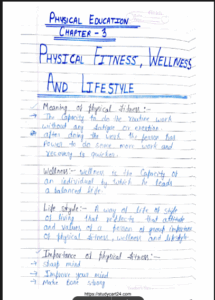 PHYSICAL EDUCATION
CHAPTER - 3
PHYSICAL FITNESS, WELLNESS
AND LIFESTYLE
Meaning of Physical fitness :-
→ The capacity to do the routine work
without any fatigue or exertion
after doing the work the person has
power to do some more work and
recovery is quicker.
Wellness :- Wellness is the capacity of
an individual by which he leads
a balanced life.
Life style :- A way of life or style
of living that reflects that attitude
and values of a person or group
of physical fitness, wellness and lifestyle
Importance of physical fitness :-
→ Sharp mind
→ Improve your mind
→ Make bone strong
https://studycart24.com